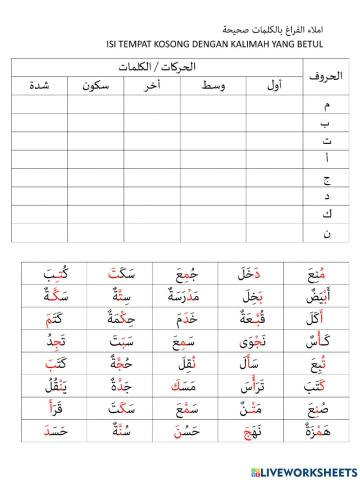 املاء الفراغ بالكلمات صحيحة
ISI TEMPAT KOSONG DENGAN KALIMAH YANG BETUL
الحروف الحركات / الكلمات
أول وسط أخر سكون شدة
م
ب
ت
أ
ج
د
ك
ن
مُنِعَ دَخَلَ جُمِعَ سَكَتَ كُتِبَ
أَبْيَضٌ بَخِلَ مَدْرَسَةٌ سِتَّةٌ سَكَّةٌ
أَكَلَ قُبَّعَةٌ خَدَمَ حِكْمَةٌ كَتَمَ
كَأْسٌ نَجْوَى سَمِعَ سَبَتَ تَجِدُ
تُبِعَ سَأَلَ نُقِلَ حُجَّةٌ كَتَبَ
كَتَبَ تَرَأَّسَ مَسَكَ جَدَّةٌ يَنْقُلُ
صُنِعَ مَتْنٌ سَمَّعَ سَكَتَ قَرَأَ
هَمْزَةٌ نَهَجَ حَسُنَ سُنَّةٌ حَسَدَ
LIVEWORKSHEETS